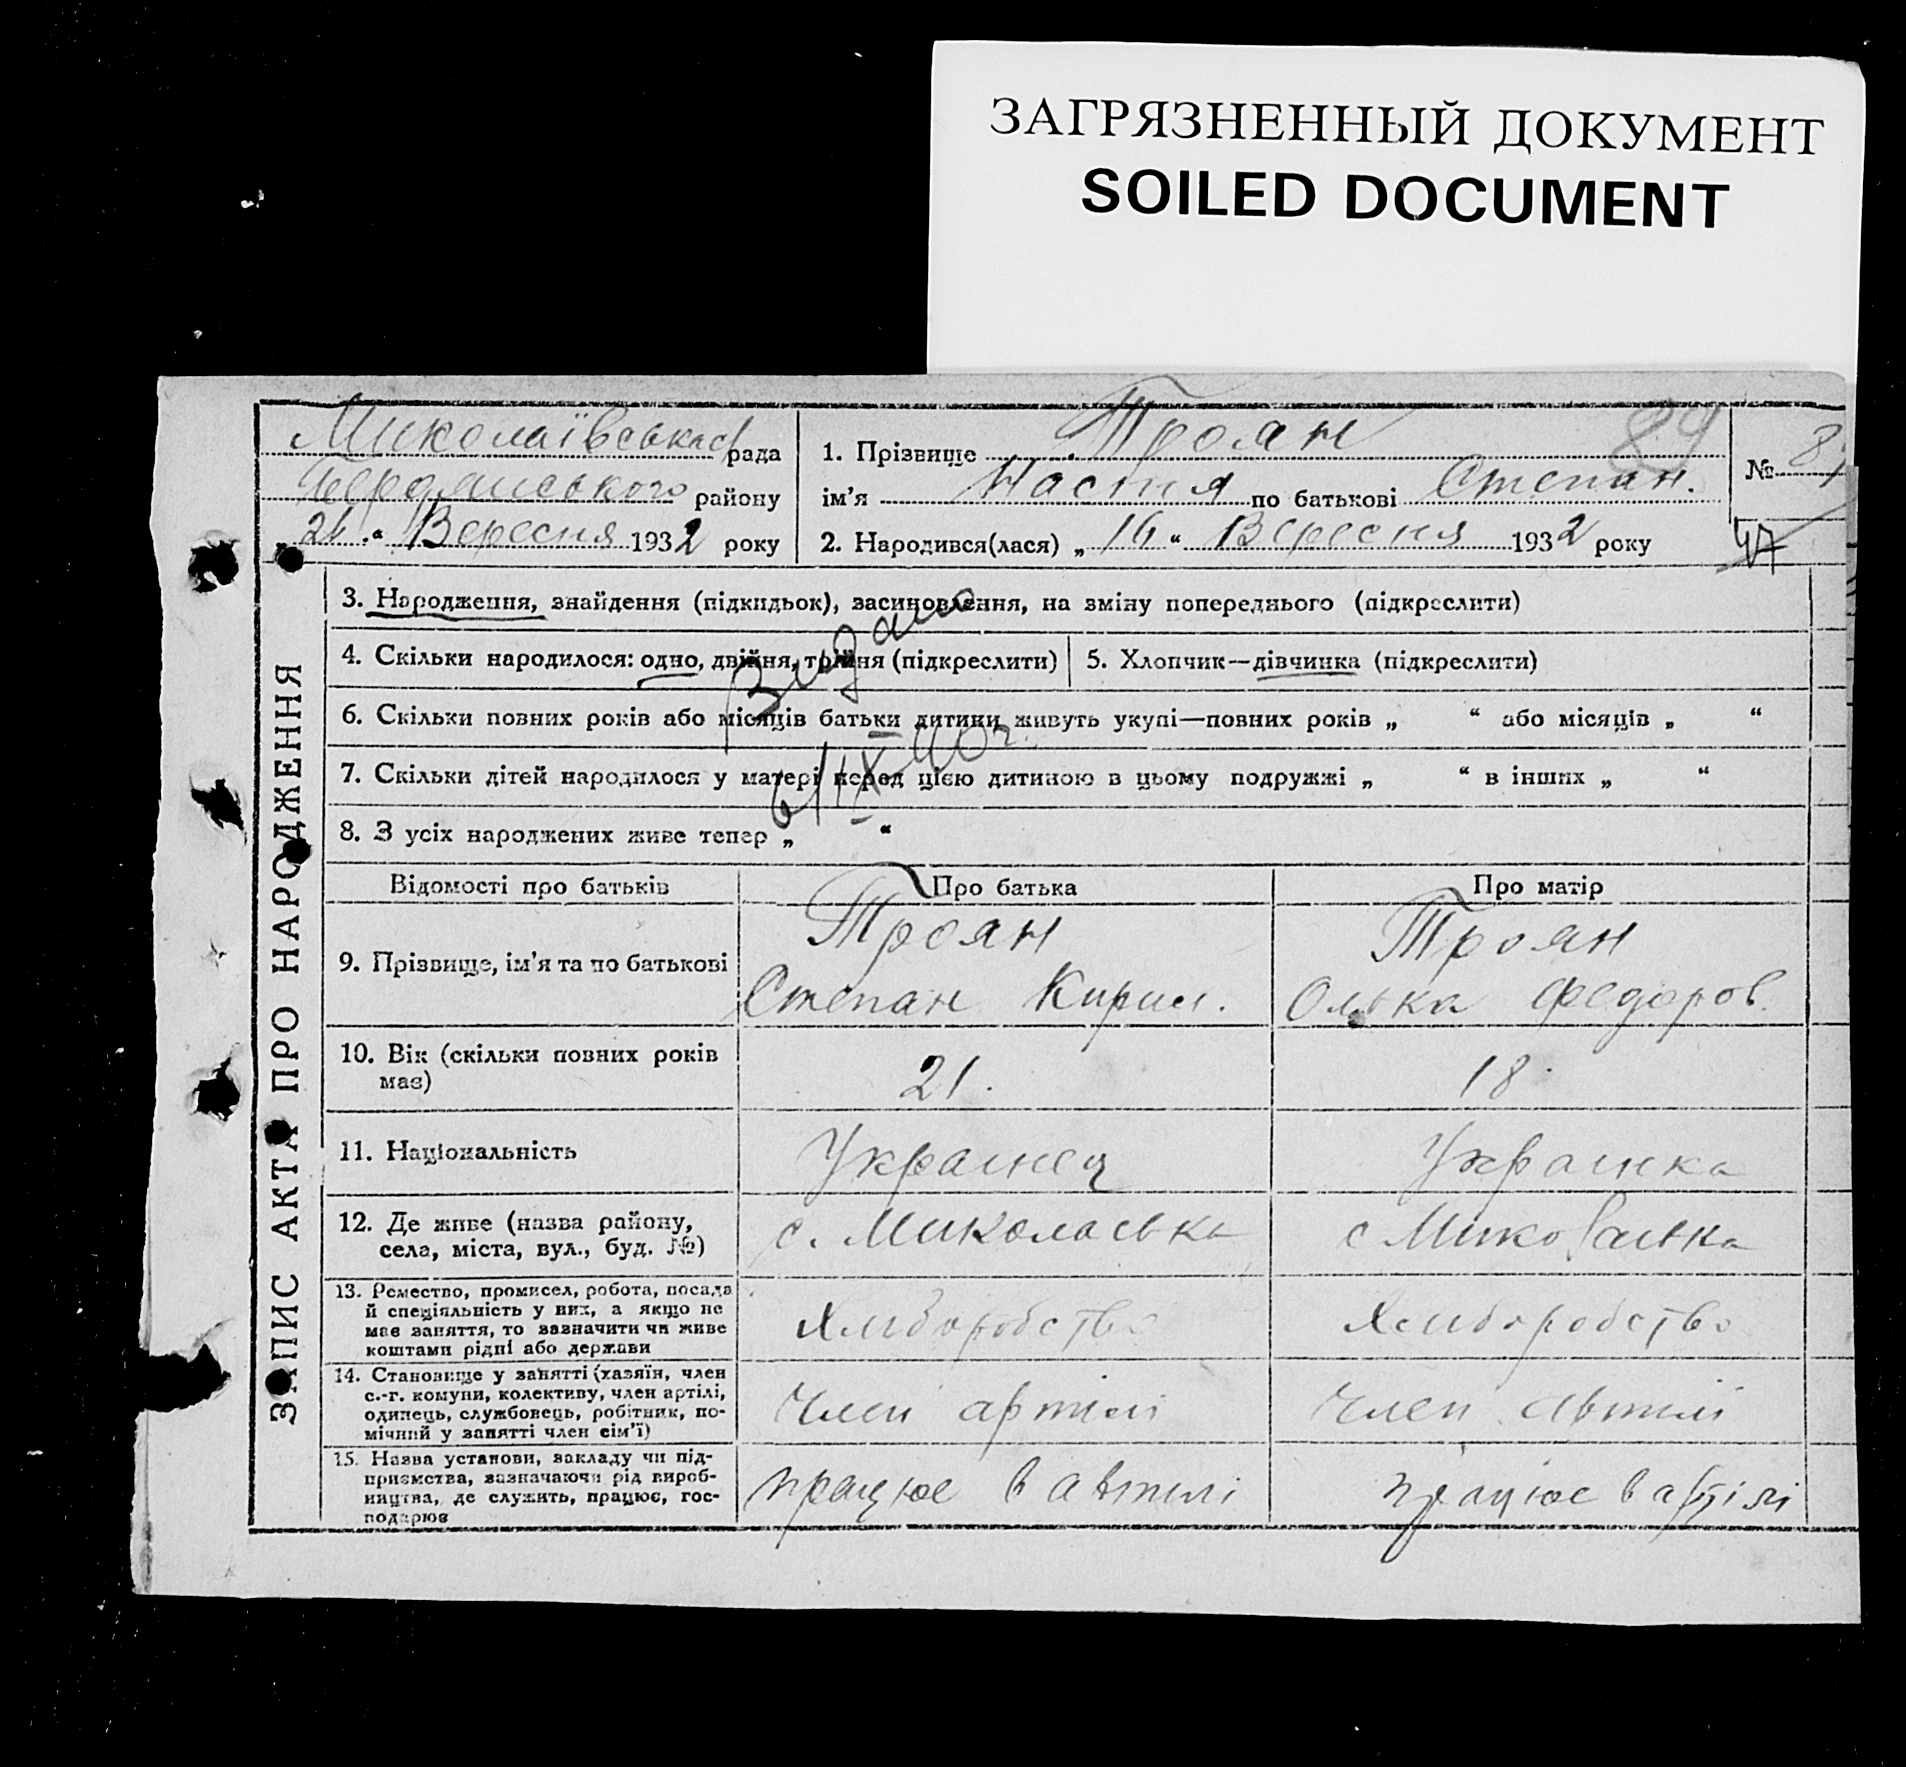 ЗАГРЯЗНЕННЫЙ ДОКУМЕНТ
SOILED DOCUMENT
Миколаївська рада
Бердянського району
„ 26 “ Вересня 1932 року
1. Прізвище Троян
ім’я Настя по батькові Степан.
2. Народився(лася) „ 16 “ Вересня 1932 року
89
№
47
ЗАПИС АКТА ПРО НАРОДЖЕННЯ
3. Народження, знайдення (підкидьок), засиновлення, на зміну попереднього (підкреслити)
4. Скільки народилося: одно, двійня, трійня (підкреслити)
5. Хлопчик—дівчинка (підкреслити)
Видано
6. Скільки повних років або місяців батьки дитини живуть укупі—повних років „ “ або місяців „ “
6/IX 40 г.
7. Скільки дітей народилося у матері перед цією дитиною в цьому подружжі „ “ в інших „ “
8. З усіх народжених живе тепер „ “
Відомості про батьків
Про батька
Про матір
9. Прізвище, ім’я та по батькові
Троян
Степан Кирил.
Троян
Олька Федоров.
10. Вік (скільки повних років
має)
21.
18.
11. Національність
Украинец
Украинка
12. Де живе (назва району,
села, міста, вул., буд. №)
с. Миколаська
с
13. Ремество, промисел, робота, посада
й спеціяльність у них, а якщо не
має заняття, то зазначити чи живе
коштами рідні або держави
Хлиборобство
Хлиборобство
14. Становище у занятті (хазяїн, член
с.-г. комуни, колективу, член артілі,
одинець, службовець, робітник, по-
мічний у занятті член сім’ї)
Член артілі
Член артілі
15. Назва установи, закладу чи під-
приємства, зазначаючи рід вироб-
ництва, де служить, працює, гос-
подарює
працює в артілі
працює в артілі